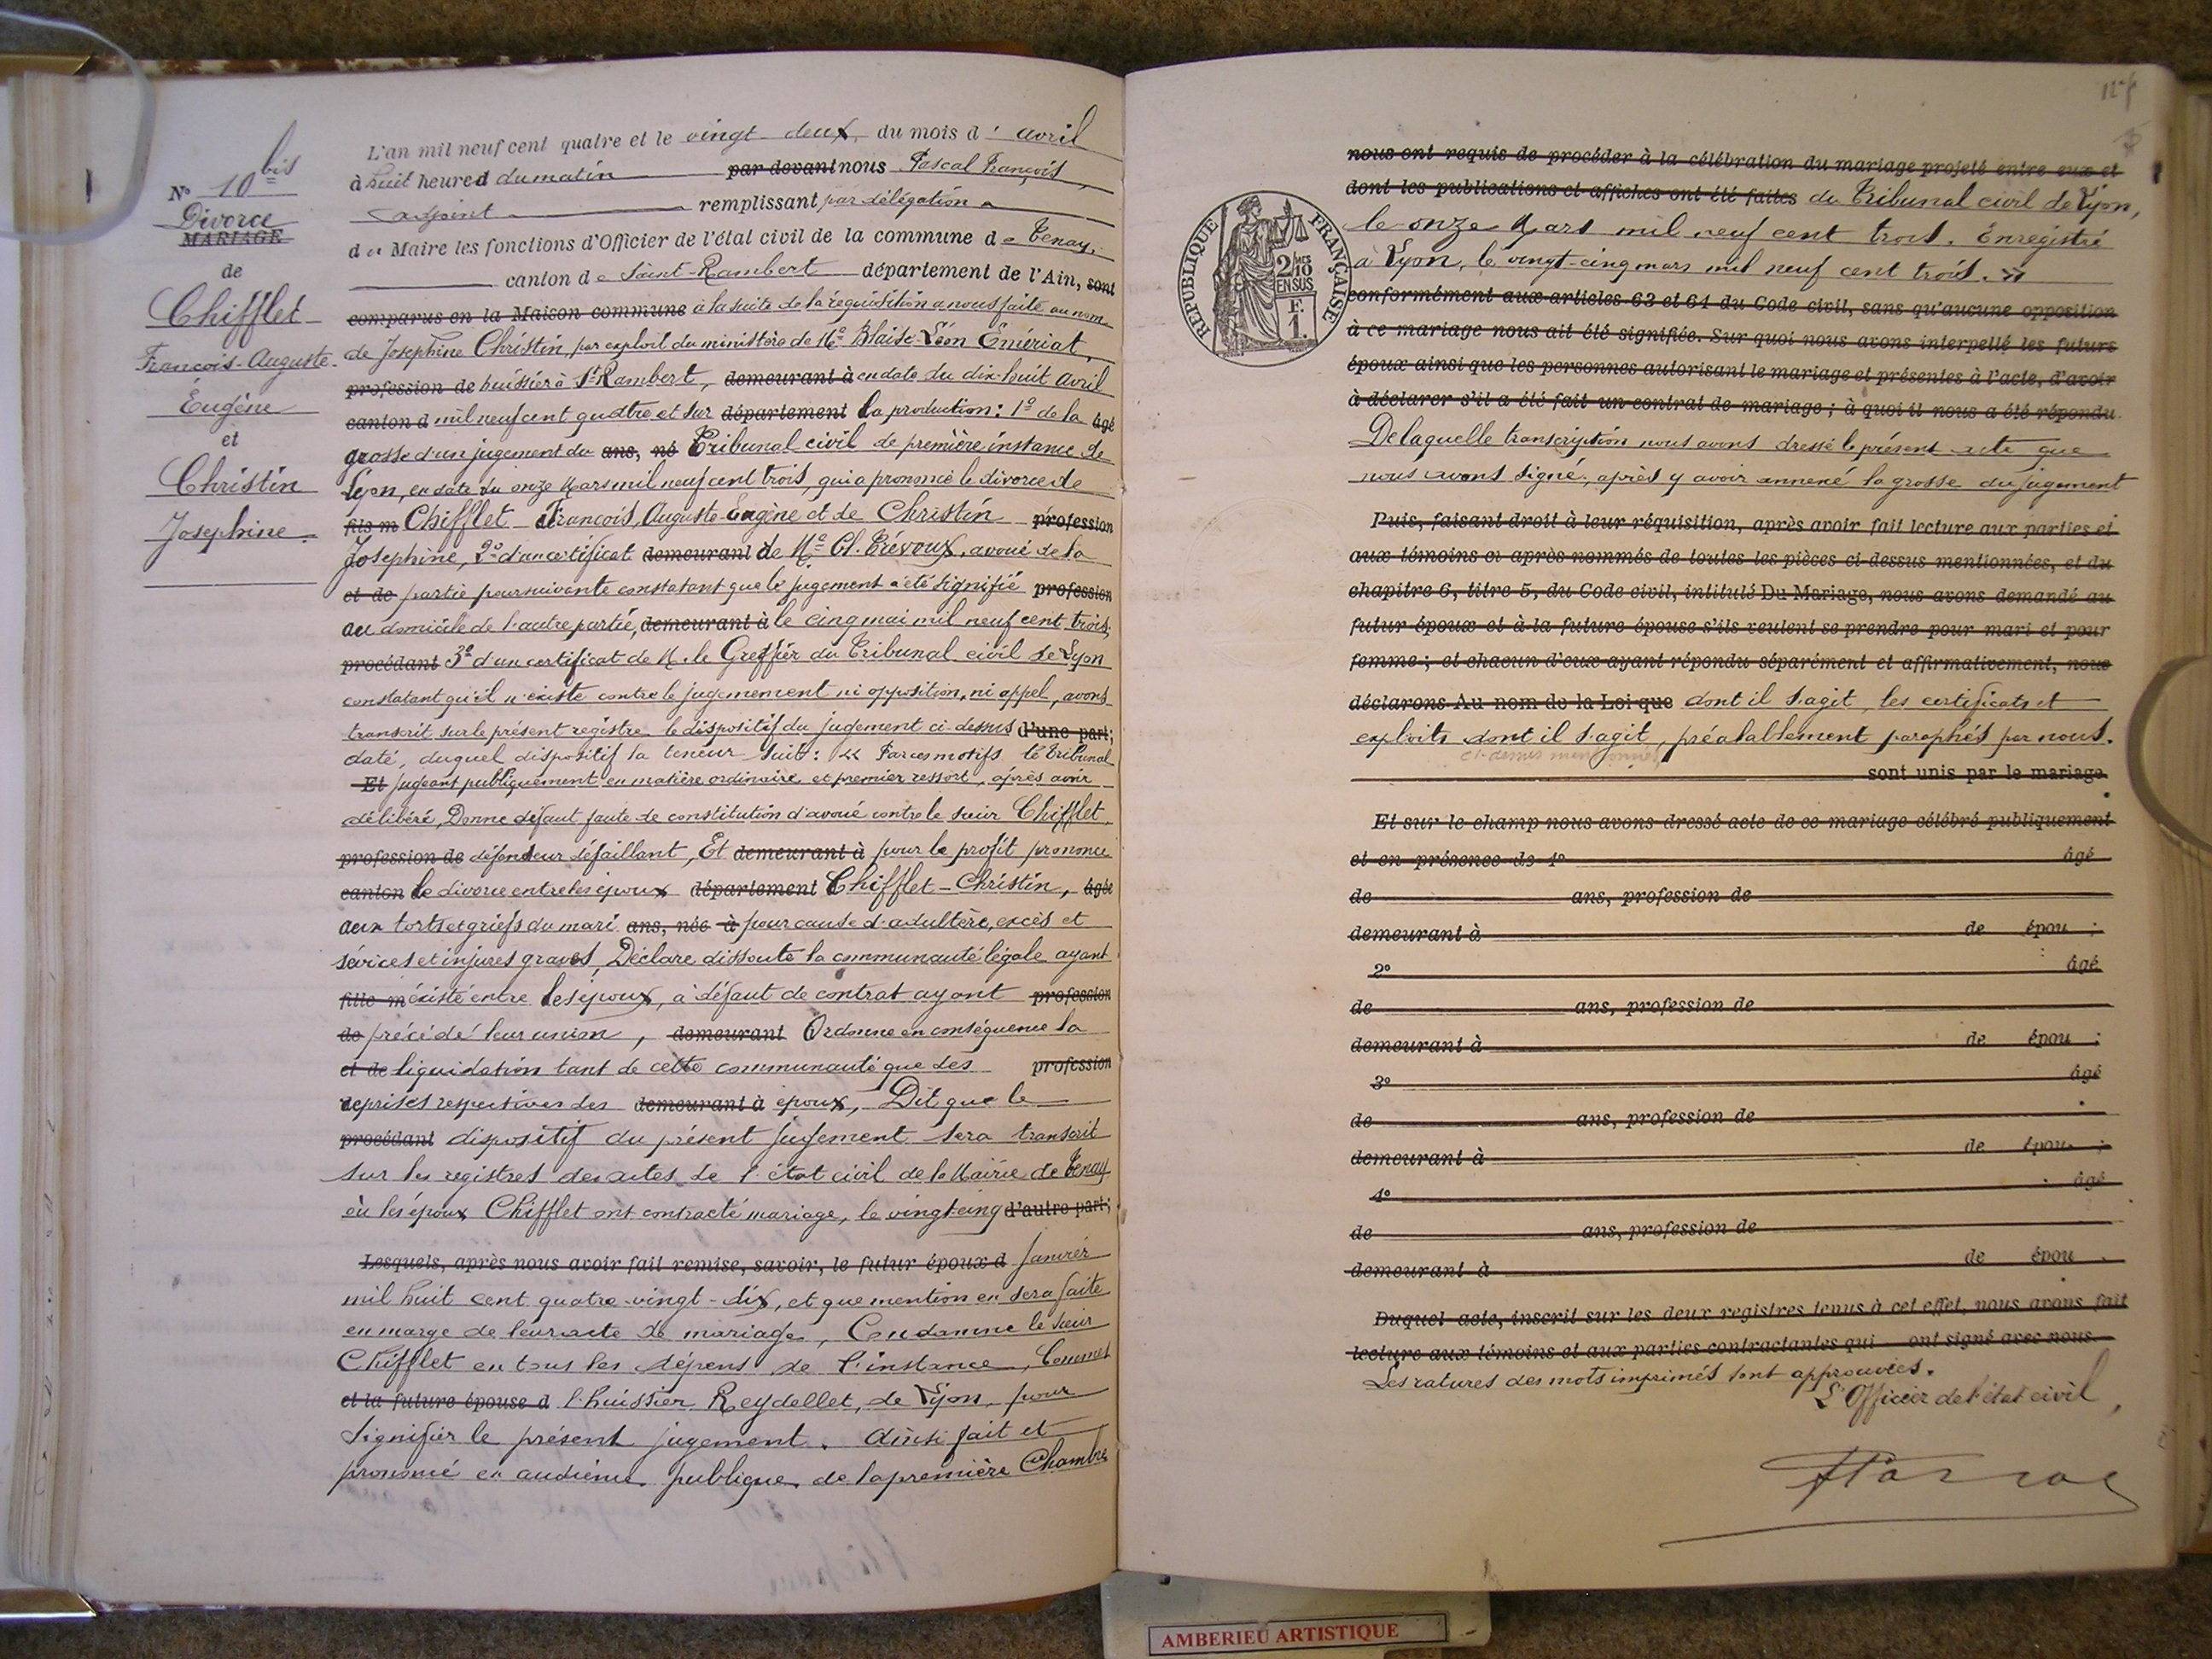 N° 10 bis
Divorce
MARIAGE
de
Chifflet
François-Auguste-
Eugène
et
Christin
Josephine.
L'an mil neuf cent quatre et le vingt-deux, du mois d'avril
à huit heures du matin par devant nous Pascal François,
adjoint remplissant par délégation
du Maire les fonctions d'Officier de l'état civil de la commune de Tenay,
canton de Saint-Rambert département de l'Ain, sont
comparus en la Maison commune à la suite de la réquisition à nous faite au nom
de Josephine Christin, par exploit du ministère de Me Blaise-Léon Emériat,
profession de huissier à St-Rambert, demeurant à en date du dix-huit Avril
canton d mil neuf cent quatre et sur département la production: 1° de la âgé
grosse d'un jugement du ans, né Tribunal civil de première instance de
Lyon, en date du onze Mars mil neuf cent trois, qui a prononcé le divorce de
fils m Chifflet François, Auguste-Eugène et de Christin profession
Josephine, 2° d'un certificat demeurant de Me Cl. Trévoux, avoué de la
et de partie poursuivante constatant que le jugement a été signifié profession
au domicile de l'autre partie, demeurant à le cinq mai mil neuf cent trois,
procédant 3° d'un certificat de M. le Greffier du Tribunal civil de Lyon
constatant qu'il n'existe contre le jugemement ni opposition, ni appel, avons
transcrit sur le présent registre le dispositif du jugement ci-dessus d'une part;
daté, duquel dispositif la teneur suit: « Par ces motifs le Tribunal
Et Jugeant publiquement en matière ordinaire et premier ressort, après avoir
délibéré, Donne défaut faute de constitution d'avoué contre le sieur Chifflet,
profession de défendeur défaillant, Et demeurant à pour le profit prononce
canton le divorce entre les époux département Chifflet-Christin, âgée
aux torts et griefs du mari ans, née à pour cause d'adultère, excès et
sévices et injures graves, Déclare dissoute la communauté légale ayant
fille m existé entre les époux, à défaut de contrat ayant profession
de précédé leur union, demeurant Ordonne en conséquence la
et de liquidation tant de cette communauté que des profession
reprises respectives des demeurant à époux, Dit que le
procédant dispositif du présent jugement sera transcrit
sur les registres des actes de l'état civil de la Mairie de Tenay
où les époux Chifflet ont contracté mariage, le vingt-cinq d'autre part;
Lesquels, après nous avoir fait remise, savoir, le futur époux d Janvier
mil huit cent quatre-vingt-dix, et que mention en sera faite
en marge de leur acte de mariage, Condamne le sieur
Chifflet en tous les dépens de l'instance, Commet
et la future épouse d l'huissier Reydellet, de Lyon, pour
signifier le présent jugement. Ainsi fait et
prononcé en audience publique de la première Chambre
nous ont requis de procéder à la célébration du mariage projeté entre eux et
dont les publications et affiches ont été faites du Tribunal civil de Lyon,
le onze Mars mil neuf cent trois. Enregistré
à Lyon, le vingt-cinq mars mil neuf cent trois. »
RÉPUBLIQUE FRANÇAISE
2/10
EN SUS
F.
1.
conformément aux articles 63 et 64 du Code civil, sans qu'aucune opposition
à ce mariage nous ait été signifiée. Sur quoi nous avons interpellé les futurs
époux ainsi que les personnes autorisant le mariage et présentes à l'acte, d'avoir
à déclarer s'il a été fait un contrat de mariage; à quoi il nous a été répondu
De laquelle transcription nous avons dressé le présent acte que
nous avons signé, après y avoir annexé la grosse du jugement
Puis, faisant droit à leur réquisition, après avoir fait lecture aux parties et
aux témoins ci après nommés de toutes les pièces ci-dessus mentionnées, et du
chapitre 6, titre 5, du Code civil, intitulé Du Mariage, nous avons demandé au
futur époux et à la future épouse s'ils veulent se prendre pour mari et pour
femme; et chacun d'eux ayant répondu séparément et affirmativement, nous
déclarons Au nom de la Loi que dont il s'agit, les certificats et
exploits dont il s'agit, préalablement paraphés par nous.
ci-dessus mentionnés
sont unis par le mariage.
Et sur le champ nous avons dressé acte de ce mariage célébré publiquement
et en présence de 1° âgé
de ans, profession de
demeurant à de épou ;
2° âgé
de ans, profession de
demeurant à de épou ;
3° âgé
de ans, profession de
demeurant à de épou ;
4° âgé
de ans, profession de
demeurant à de épou .
Duquel acte, inscrit sur les deux registres tenus à cet effet, nous avons fait
lecture aux témoins et aux parties contractantes qui ont signé avec nous
Les ratures des mots imprimés sont approuvées.
L'Officier de l'état civil,
AMBERIEU ARTISTIQUE